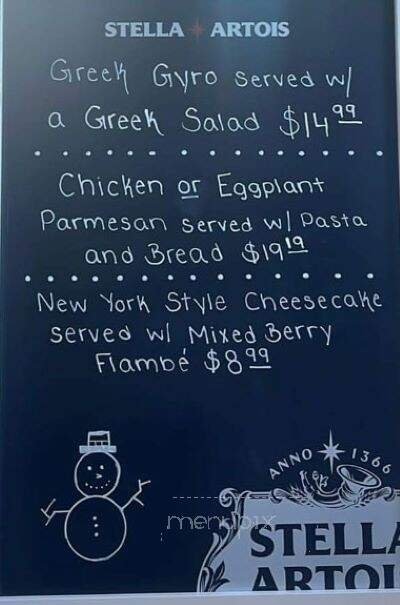 STELLA ARTOIS
Greek Gyro served w/
a Greek Salad $14.99
Chicken or Eggplant
Parmesan served w/ Pasta
and Bread $19.19
New York Style Cheesecake
served w/ Mixed Berry
Flambé $8.99
ANNO 1366
menupix
STELLA
ARTOI